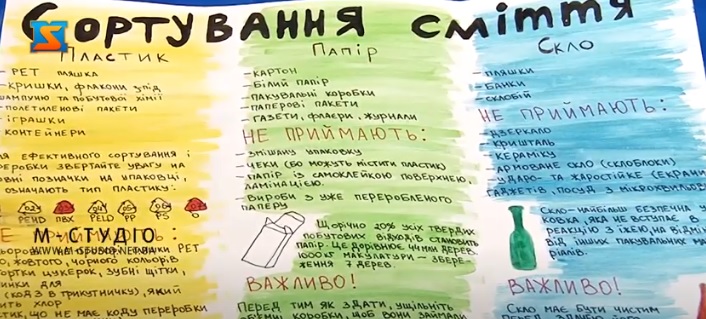 Сортування сміття
Пластик
- PET пляшка
- кришки, флакони у під
шампуню та побутової хімії
- поліетиленові пакети
- іграшки
- контейнери
ля ефективного сортування і
реробки звертайте увагу на
овні позначки на упаковці,
означають тип пластику:
PEHD ПВХ PELD PP PS O
М-СТУДІО
ки PET
о, жовтого, чорного кольорів
ортки цукерок, зубні щітки,
инки для
(код 3 в трикутничку), який
ить хлор
стик, що не має коду переробки
Папір
- картон
- білий папір
- пакувальні коробки
- паперові пакети
- газети, флаєри, журнали
НЕ ПРИЙМАЮТЬ:
- змішану упаковку
- чеки (бо можуть містити пластик)
- папір з самоклейкою поверхнею,
ламінацією.
- вироби з уже переробленого
паперу
Щорічно 20% усіх твердих
побутових відходів становить
папір. Це дорівнює 44 млн дерев.
1000 кг макулатури - збере-
ження 7 дерев.
ВАЖЛИВО!
Перед тим як здати, ущільніть
об'ємні коробки, щоб вони займали
Скло
- пляшки
- банки
- склобій
НЕ ПРИЙМАЮТЬ:
- дзеркало
- кришталь
- кераміку
- армоване скло (склоблоки)
- ударо- та жаростійке (екрани
гаджетів, посуд з мікрохвильов
Скло - найбільш безпечна
ковка, яка не вступає в
реакцію з їжею, на відмін
від інших пакувальних мате
ріалів.
ВАЖЛИВО!
Скло має бути чистим